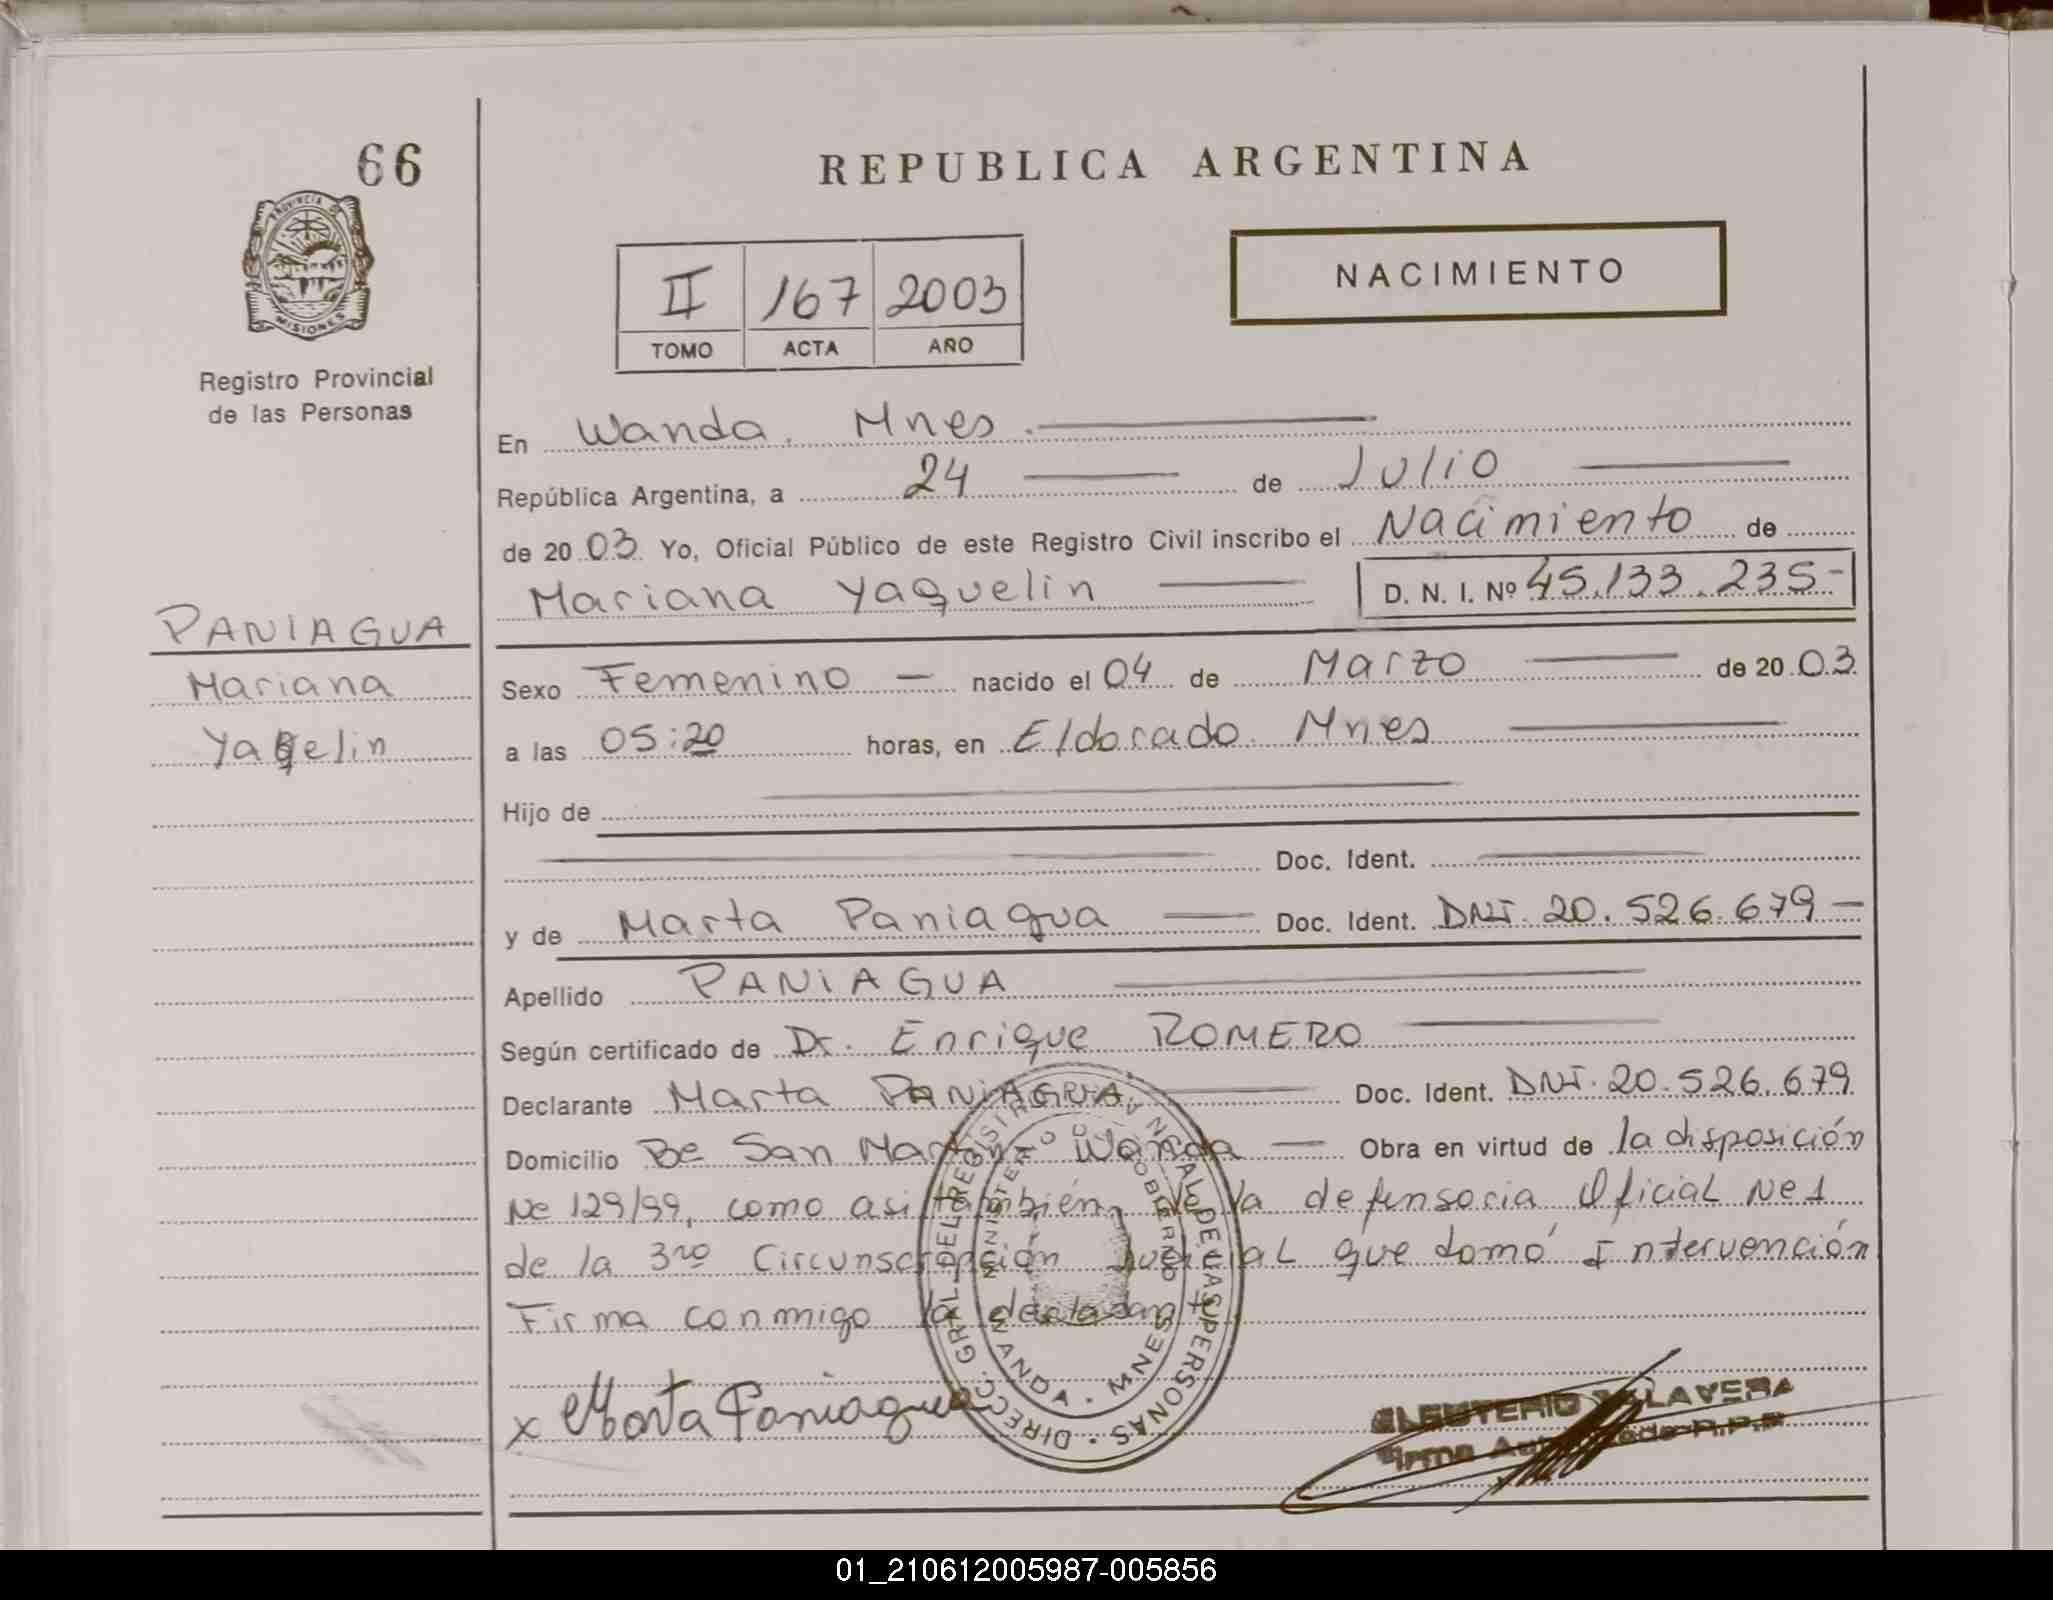 66
REPUBLICA ARGENTINA
PROVINCIA DE
MISIONES
Registro Provincial
de las Personas
II 167 2003
TOMO ACTA AÑO
NACIMIENTO
En Wanda. Mnes.
República Argentina, a 24 de Julio
de 20 03 Yo, Oficial Público de este Registro Civil inscribo el Nacimiento de
Mariana Yaquelin D. N. I. Nº 45.133.235-
PANIAGUA
Mariana
Yaqelin
Sexo Femenino — nacido el 04 de Marzo de 20 03.
a las 05:20 horas, en Eldorado. Mnes
Hijo de
Doc. Ident.
y de Marta Paniagua Doc. Ident. DNI. 20.526.679—
Apellido PANIAGUA
Según certificado de Dr. Enrique ROMERO
Declarante Marta PANIAGUA. Doc. Ident. DNI. 20.526.679
Domicilio Be San Martin Wanda — Obra en virtud de la disposición
Ne 129/99, como asi también, de la defensoria Oficial Ne 1
de la 3ra Circunscripción Judicial que tomó Intervención
Firma conmigo la declarante
x Marta Paniagua
DIRECC. GRAL. DEL REGISTRO PROVINCIAL DE LAS PERSONAS
MINISTERIO DE GOBIERNO
WANDA - MNES
ELEUTERIO TALAVERA
Firma Autorizada R.P.P.
01_210612005987-005856